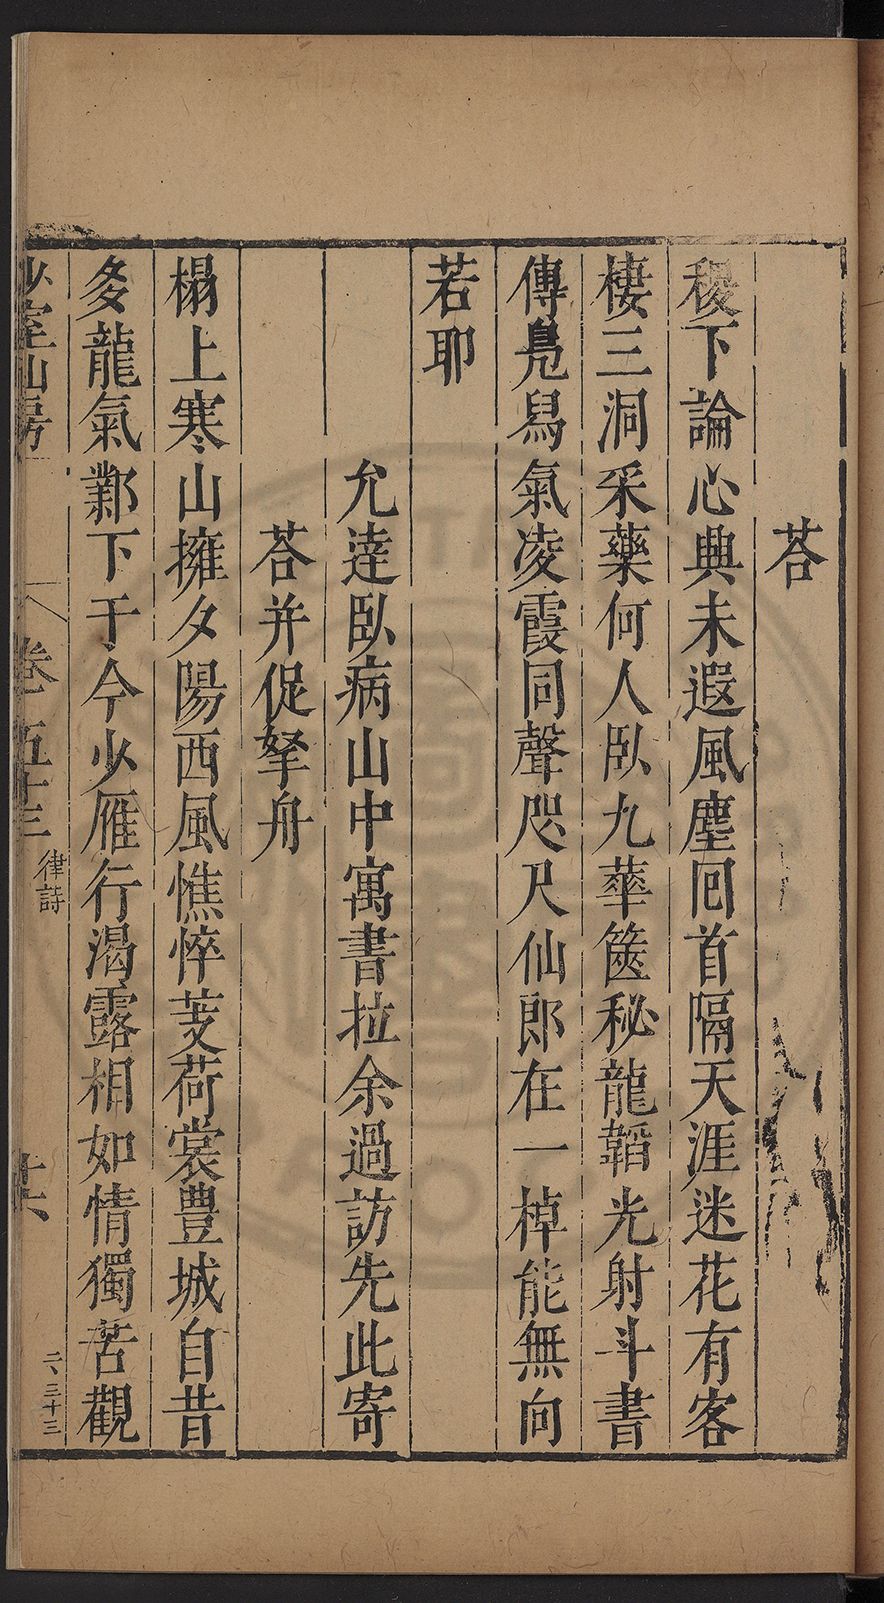 荅
稷下論心興未遐風塵回首隔天涯迷花有客
棲三洞采藥何人臥九華篋秘龍韜光射斗書
傳鳧舄氣凌霞同聲咫尺仙郎在一棹能無向
若耶
允達臥病山中寓書拉余過訪先此寄
荅并促拏舟
榻上寒山擁夕陽西風憔悴芰荷裳豊城自昔
多龍氣鄴下于今少雁行渴露相如情獨苦觀
少室山房
卷五十三
律詩
十六
二、三十三